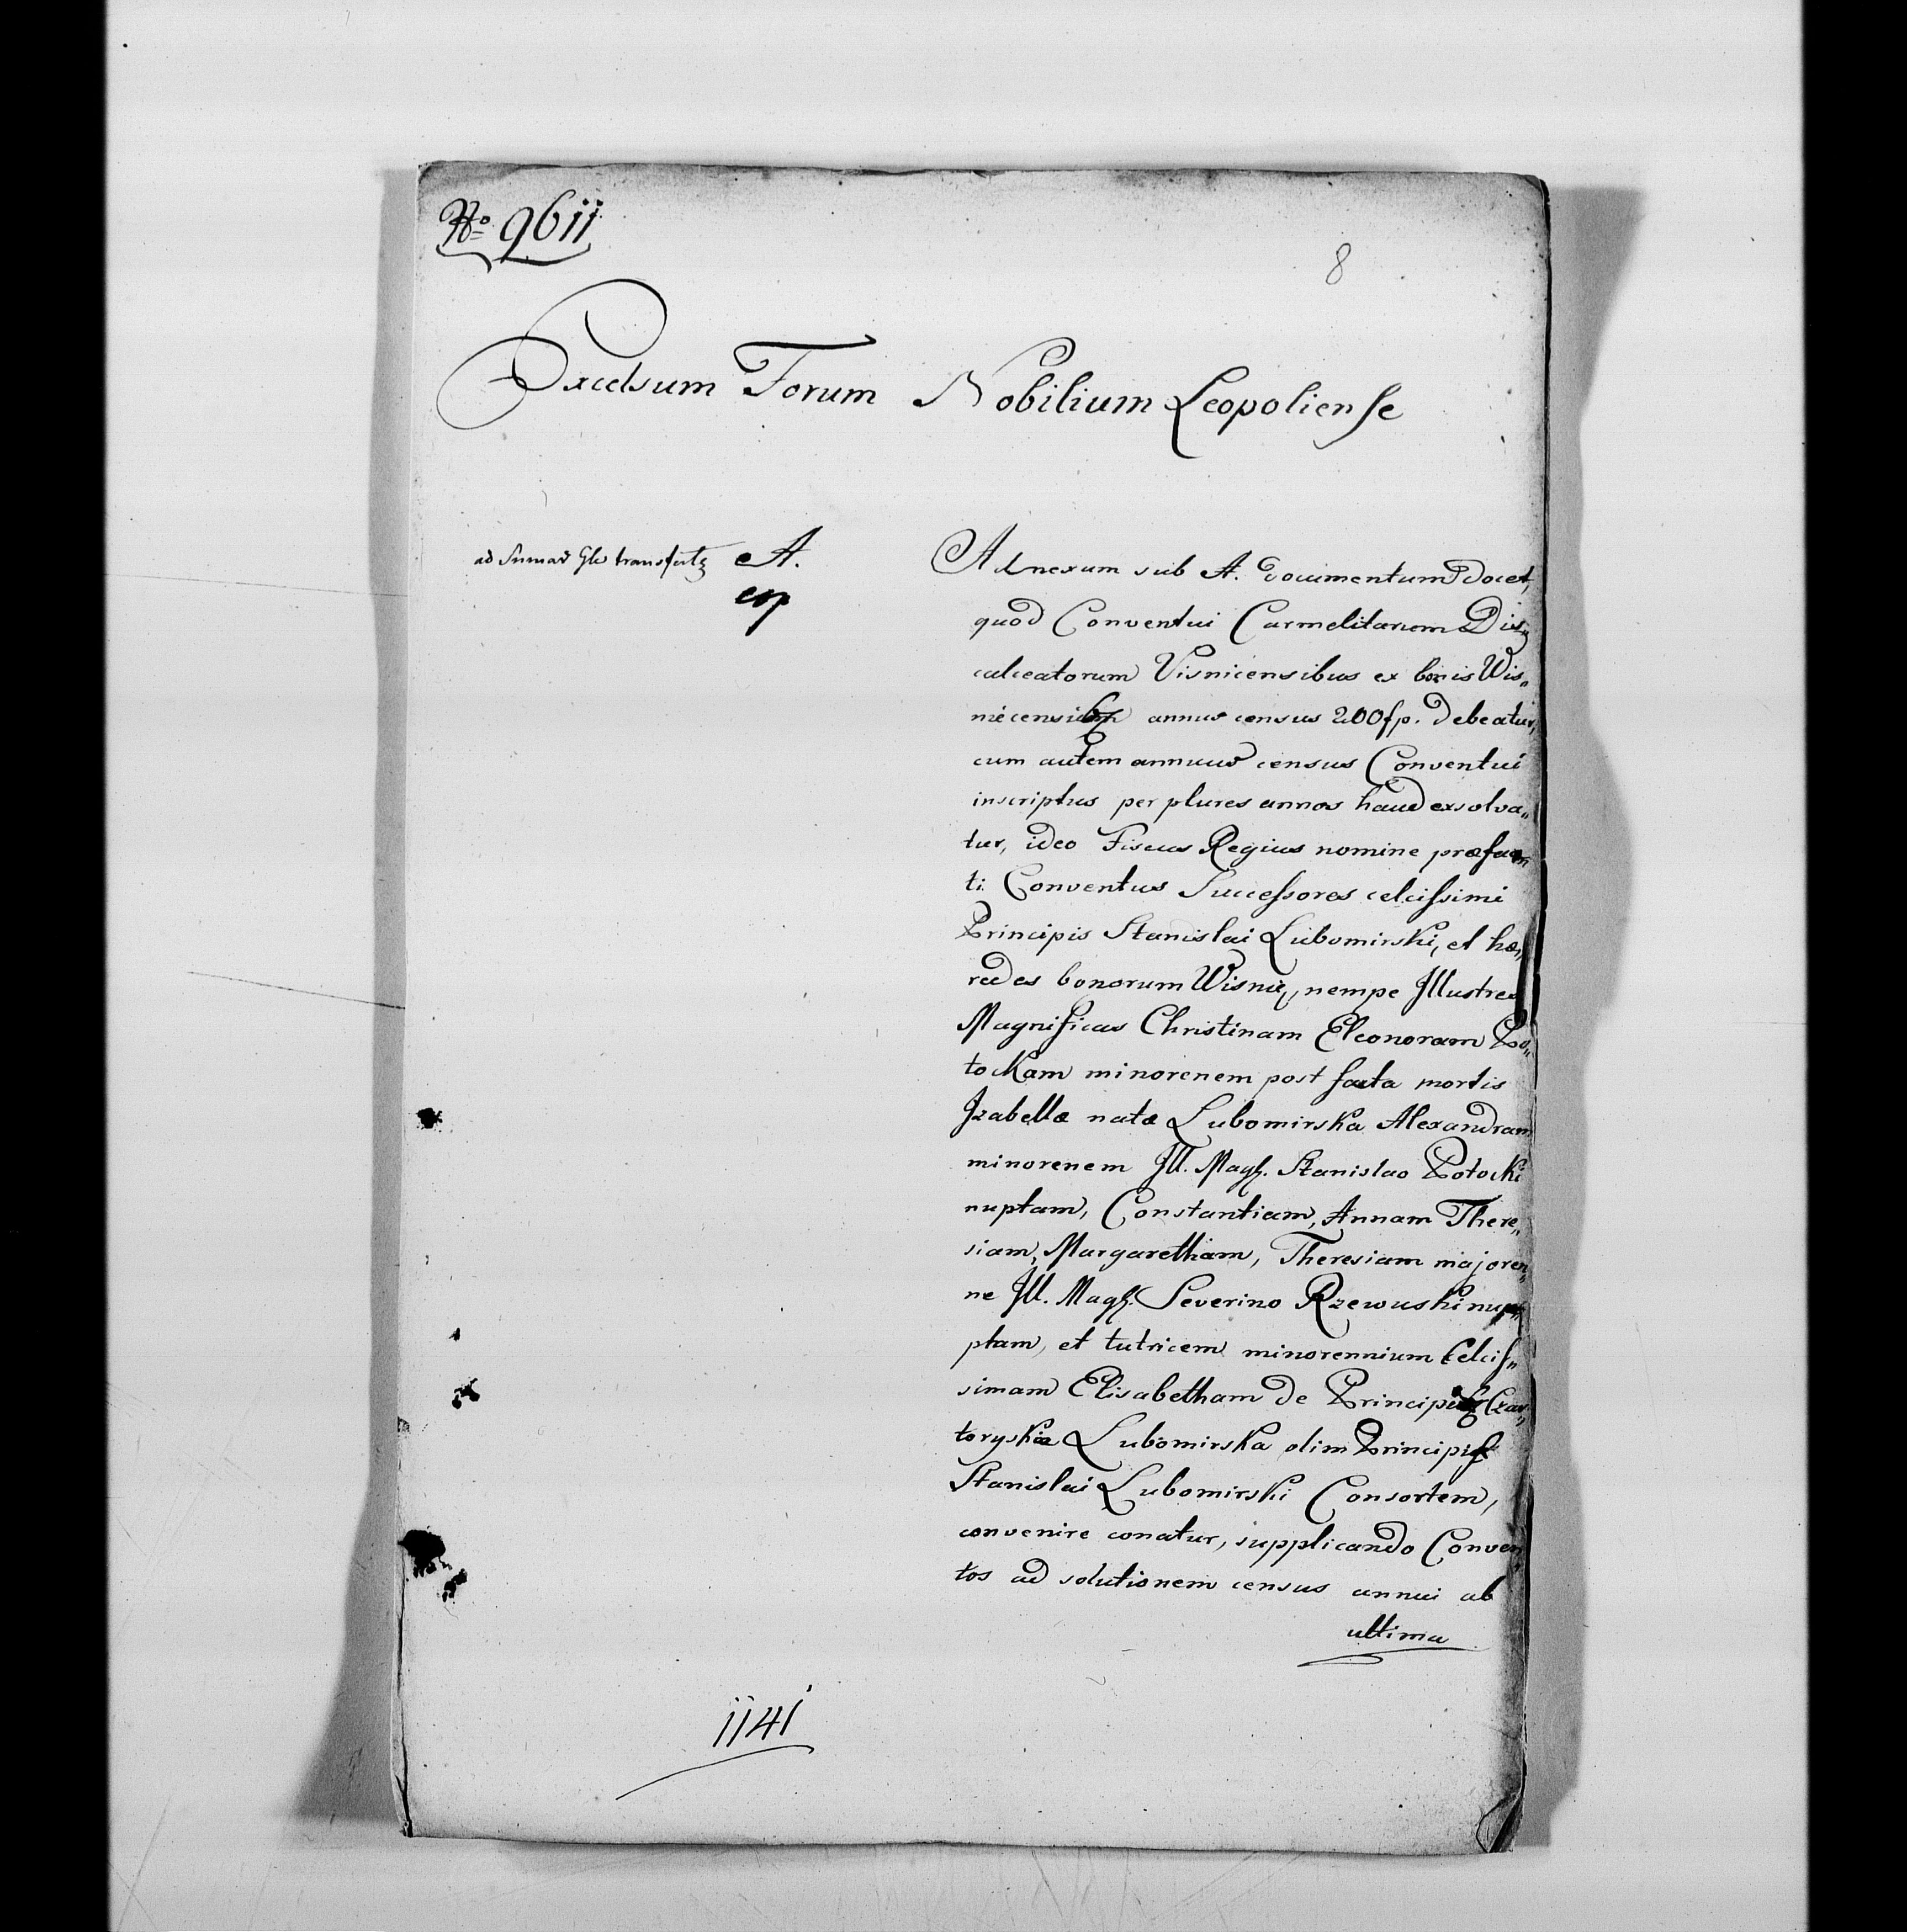 No 9611
8
Excelsum Forum Nobilium Leopoliense
A.
Adnexum sub A. documentum docet,
quod Conventui Carmelitarum Dis„
calceatorum Visnicensibus ex bonis Wis„
nicensibq annus census 200 fp. debeatur,
cum autem annuus census Conventui
inscriptus per plures annos haud exsolva„
tur, ideo Fiscus Regius nomine præfa„
ti Conventus Successores celcissimi
Principis Stanislai Lubomirski, et hæ„
redes bonorum Wisnic, nempe Illustres
Magnificas Christinam Eleonoram Po„
tockam minorenem post facta mortis
Izabellæ natæ Lubomirska Alexandram
minorenem Ill. Magf. Stanislao Potocki
nuptam, Constantiam, Annam There„
siam, Margaretham, Theresiam majoren„
ne Ill. Magf. Severino Rzewuski nup„
ptam, et tutricem minorennium Celcis„
simam Elisabetham de Principibq Czar„
toryskie Lubomirska olim Principis
Stanislai Lubomirski Consortem,
convenire conatur, supplicando Conven„
tos ad solutionem census annui ab
ultima
1141